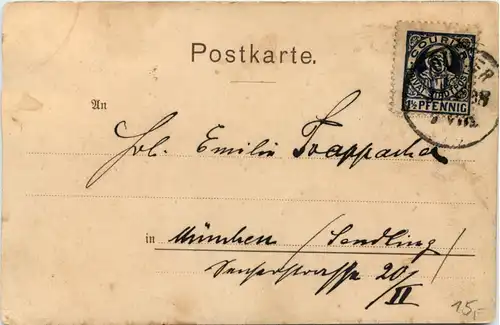 Postkarte.
COURIER
1½ PFENNIG
An
Frl. Emilie Trappacher
in München / Sendling /
20/II
15,-